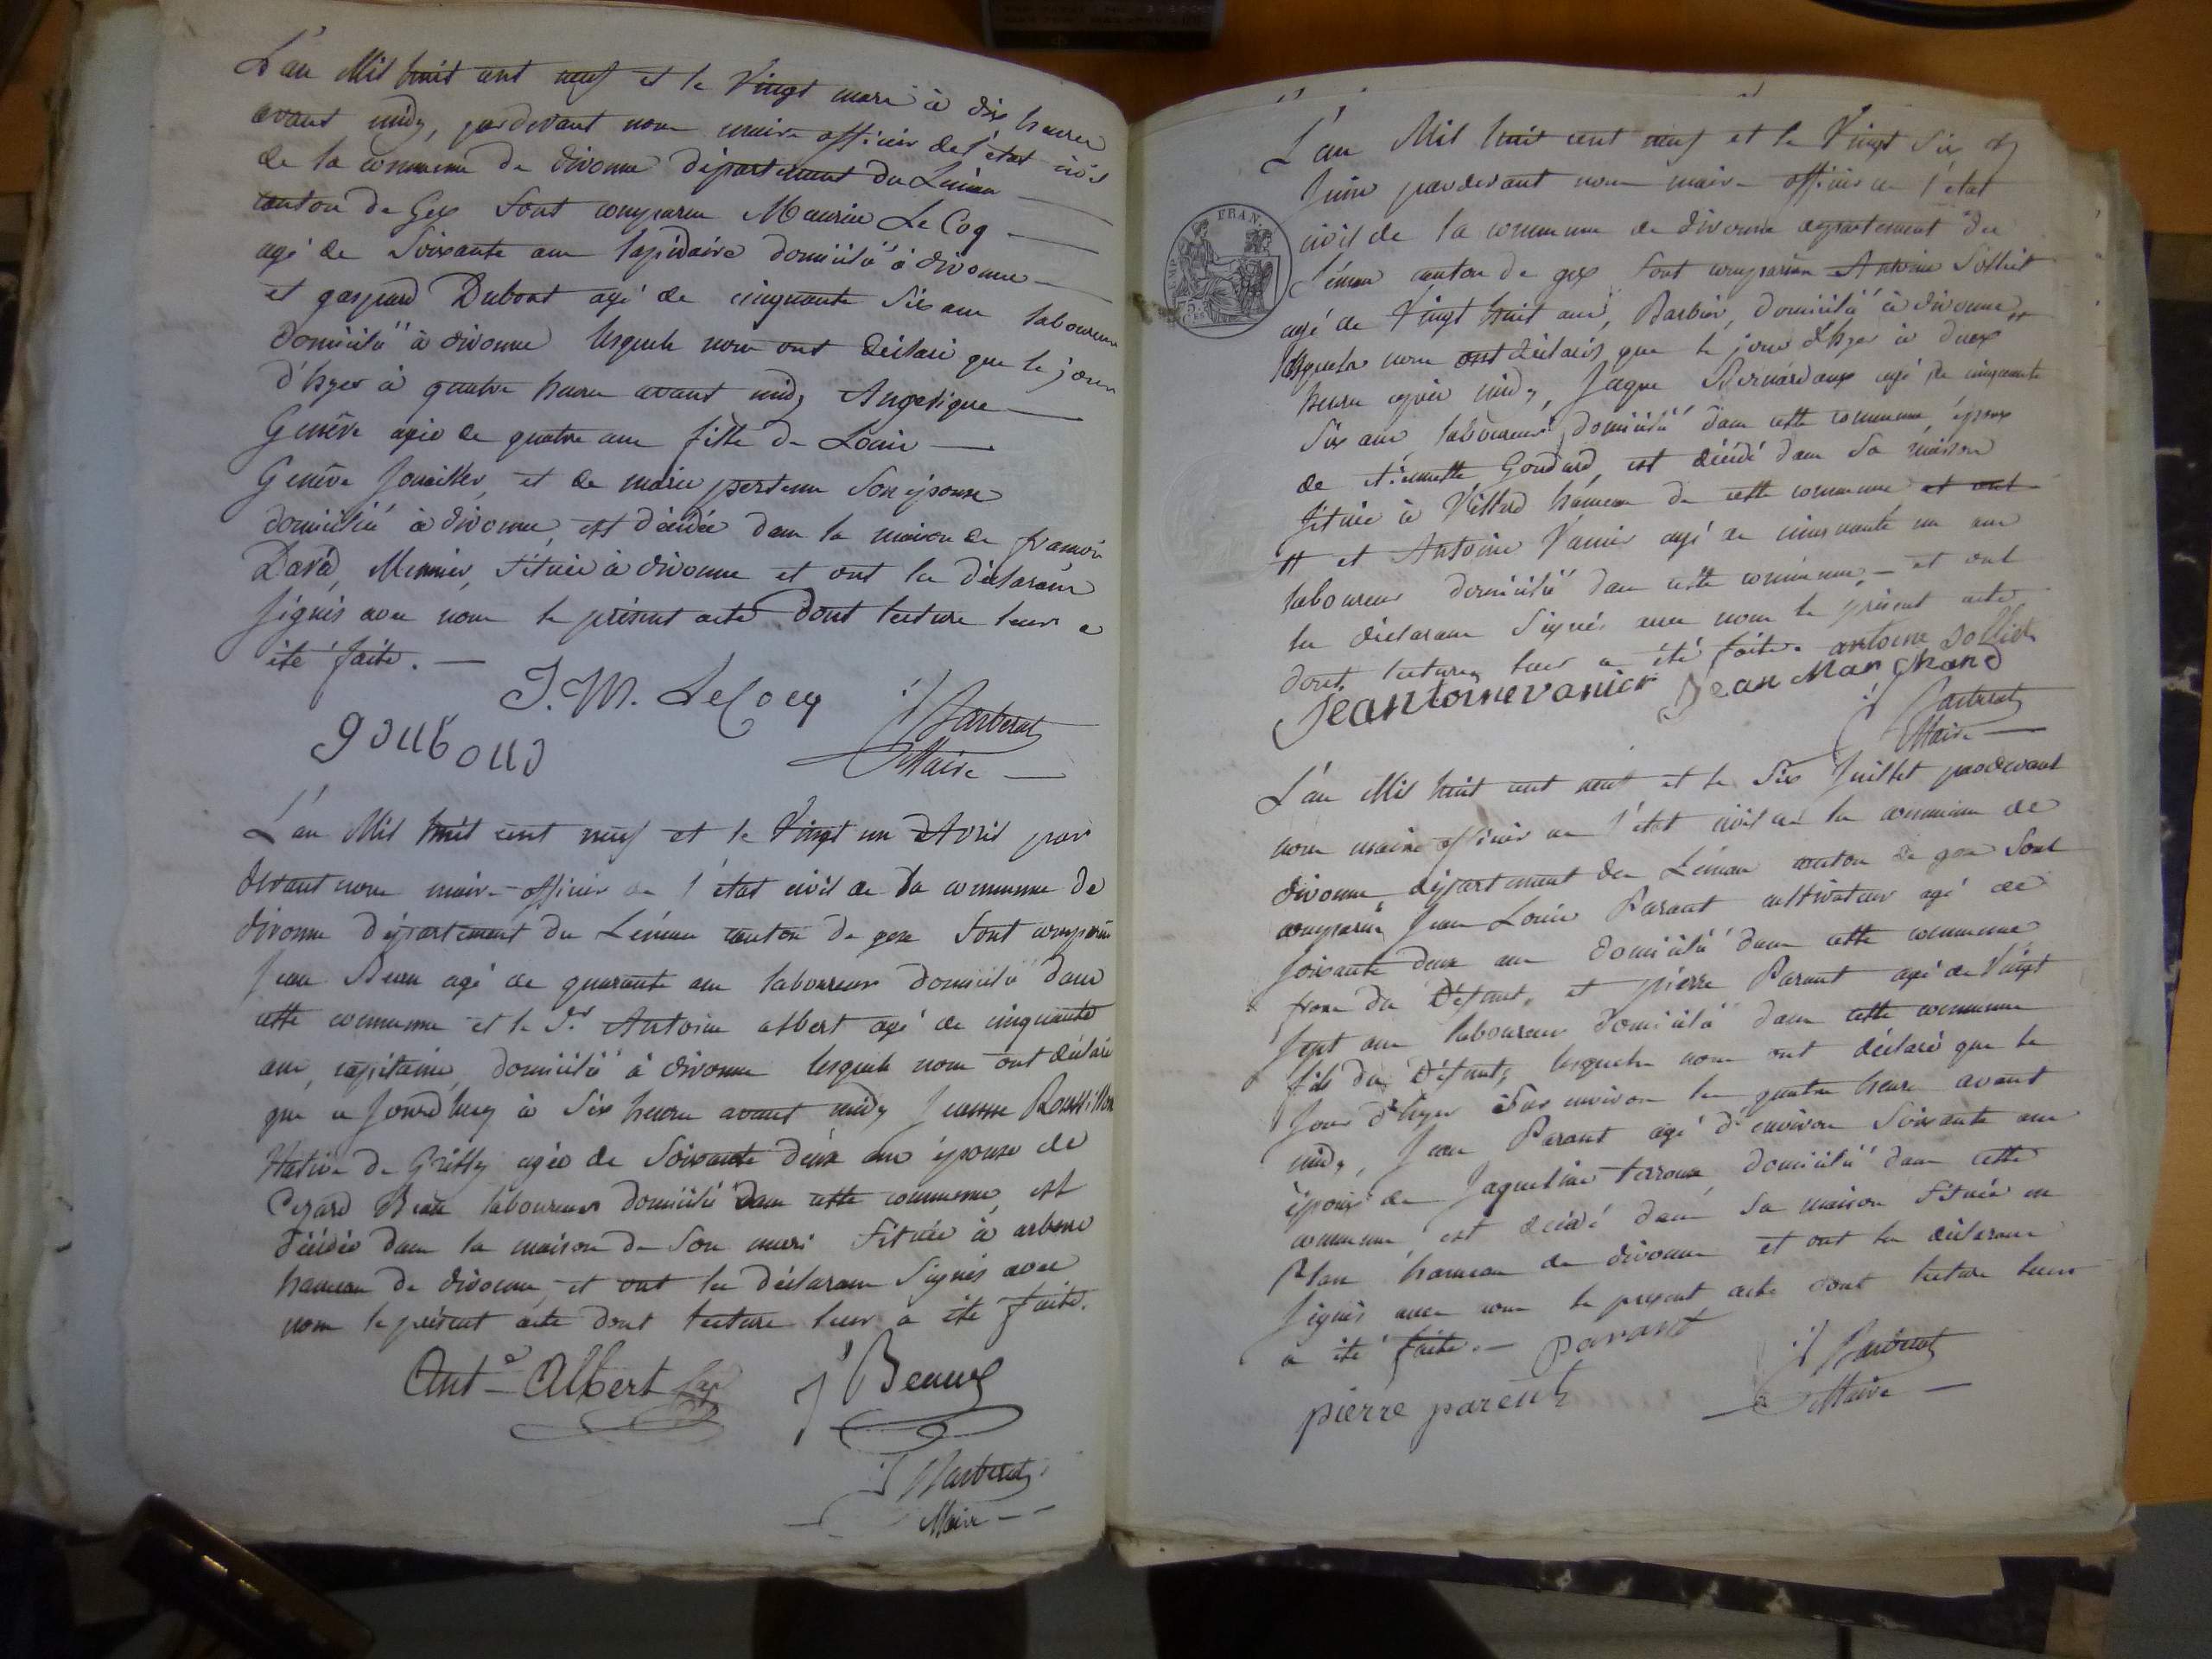 L'an Mil huit cent neuf et le Vingt mars à dix heures
avant midy, pardevant nous maire officier de l'état civil
de la commune de divonne département du Léman
canton de Gex sont comparus Maurice Le Coq
agé de soixante ans lapidaire domicilié à divonne
et gaspard Dubout agé de cinquante six ans laboureur
domicilié à divonne lesquels nous ont déclaré que le jour
d'hyer à quatre heures avant midy Angelique
Genêve agée de quatre ans fille de Louis
Genêve Joaillier, et de marie pertenne son épouse
domiciliés à divonne, est décédée dans la maison de françois
David, Meunier, située à divonne et ont les déclarans
signés avec nous le présent acte dont lecture leur a
été faite.
J. M. LeCocq
gDuboud
J Barberat
Maire
L'an Mil huit cent neuf et le Vingt un d'Avril par
devant nous maire officier de l'état civil de la commune de
divonne département du Léman canton de gex sont comparus
Jean Beau agé de quarante ans laboureur domicilié dans
cette commune et le Sr Antoine albert agé de cinquante
ans, capitaine, domicilié à divonne lesquels nous ont déclaré
que ce jourdhuy à six heures avant midy Jeanne Roussillon
Native de Grilly agée de soixante deux ans épouse de
Cezard Beau laboureur domicilié dans cette commune, est
décédée dans la maison de son mari située à arbere
hameau de divonne, et ont les déclarans signés avec
nous le présent acte dont lecture leur a été faite.
Ante Albert
J Beau
J Barberat
Maire
FRAN
75
L'an Mil huit cent neuf et le Vingt six
Juin pardevant nous maire officier de l'état
civil de la commune de divonne département du
Léman canton de gex sont comparus Antoine Solliet
agé de Vingt huit ans, Barbier, domicilié à divonne #
lesquels nous ont déclarés que le jour d'hyer à deux
heures après midy, Jaque Bernardaux agé de cinquante
six ans laboureur domicilié dans cette commune, époux
de Goudard, est décédé dans sa maison
située à Villard hameau de cette commune et ont
# et Antoine Vanier agé de cinquante un ans
laboureur domicilié dans cette commune, - et ont
les déclarans signés avec nous le présent acte
dont lecture leur a été faite. antoine Solliet
Jeantoinevanier Jean Marchand
J Barberat
Maire
L'an Mil huit cent neuf et le six Juillet pardevant
nous maire officier de l'état civil de la commune de
divonne, département du Léman canton de gex sont
comparus Jean Louis Parant cultivateur agé de
soixante deux ans domicilié dans cette commune
frère du Défunt, et pierre Parant agé de Vingt
sept ans laboureur domicilié dans cette commune
fils du Défunt, lesquels nous ont déclaré que le
jour d'hyer environ les quatre heures avant
midy, Jean Parant agé d'environ soixante ans
époux de Jaqueline terroux domicilié dans cette
commune est décédé dans sa maison située en
Plan hameau de divonne et ont les déclarans
signés avec nous le present acte dont lecture leur
a été faite. - parant
pierre parent
J Barberat
Maire